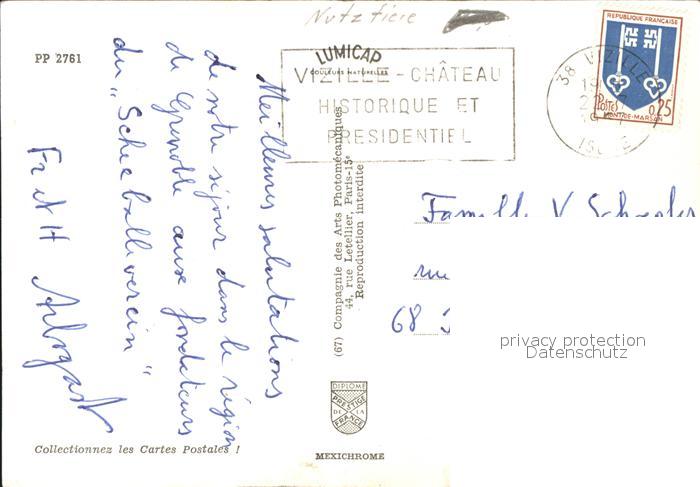 Nutztiere
PP 2761
LUMICAP
COULEURS NATURELLES
VIZILLE - CHÂTEAU
HISTORIQUE ET
PRESIDENTIEL
38 VIZILLE
ISERE
REPUBLIQUE FRANÇAISE
POSTES
0,25
MONT-DE-MARSAN
Meilleures salutations
de notre séjour dans la région
de Grenoble aux fondateurs
du "Schieballverein"
Fr et H Arbogast
(67) Compagnie des Arts Photomécaniques
44, rue Letellier, Paris-15e
Reproduction interdite
Famille V.
rue
68 S
privacy protection
Datenschutz
DIPLOME
PRESTIGE
DE LA
FRANCE
Collectionnez les Cartes Postales !
MEXICHROME